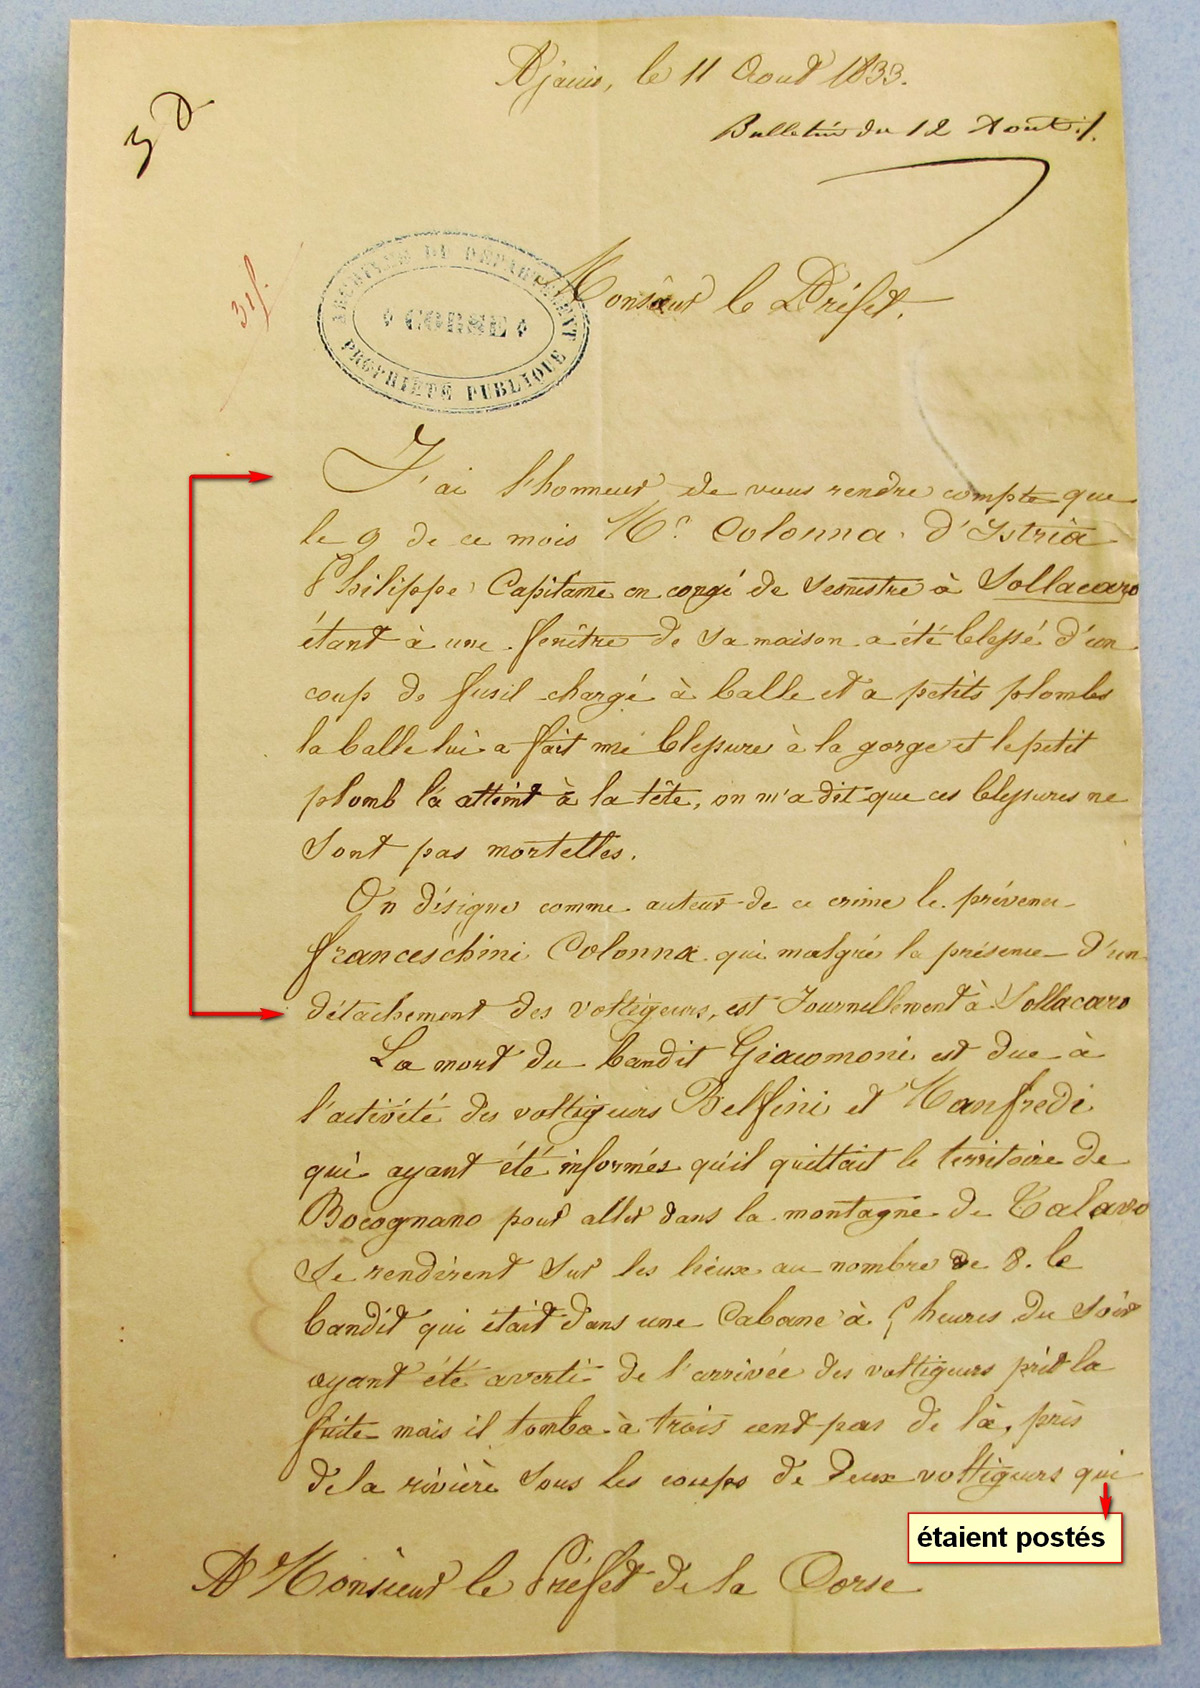 Ajaccio, le 11 Aout 1833.
Bulletin du 12 Aout ./.
3 d
ARCHIVES DU DÉPARTEMENT
CORSE
PROPRIÉTÉ PUBLIQUE
Monsieur le Préfet.
J'ai l'honneur de vous rendre compte que
le 9 de ce mois Mr. Colonna d'Istria
Philippe Capitaine en congé de Semestre à Sollacaro
étant à une fenêtre de sa maison a été blessé d'un
coup de fusil chargé à balle et a petits plombs
la balle lui a fait une blessure à la gorge et le petit
plomb l'a atteint à la tête, on m'a dit que ces blessures ne
sont pas mortelles.
On désigne comme auteur de ce crime le prévenu
franceschini Colonna qui malgré la présence d'un
détachement des voltigeurs, est Journellement à Sollacaro
La mort du bandit Giacomoni est due à
l'activité des voltigeurs Belfini et Manfredi
qui ayant été informés qu'il quittait le territoire de
Bocognano pour aller dans la montagne de Talavo
se rendirent sur les lieux au nombre de 8. le
bandit qui était dans une Cabane à 5 heures du soir
ayant été averti de l'arrivée des voltigeurs prit la
fuite mais il tomba à trois cent pas de là, près
de la rivière sous les coups de deux voltigeurs qui
étaient postés
A Monsieur le Préfet de la Corse